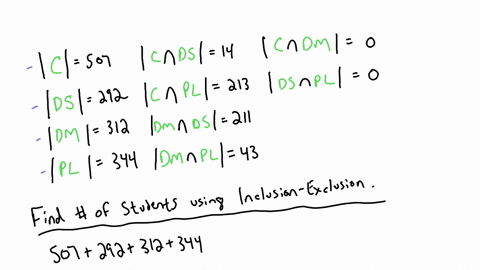 - |C| = 507 |C ∩ DS| = 14 |C ∩ DM| = 0
- |DS| = 292 |C ∩ PL| = 213 |DS ∩ PL| = 0
- |DM| = 312 |DM ∩ DS| = 211
- |PL| = 344 |DM ∩ PL| = 43
Find # of Students using Inclusion-Exclusion.
507 + 292 + 312 + 344